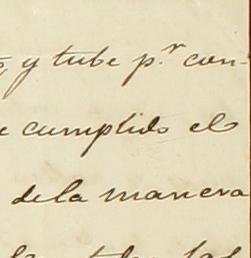 y tube p.r con-
cumplido el
dela manera